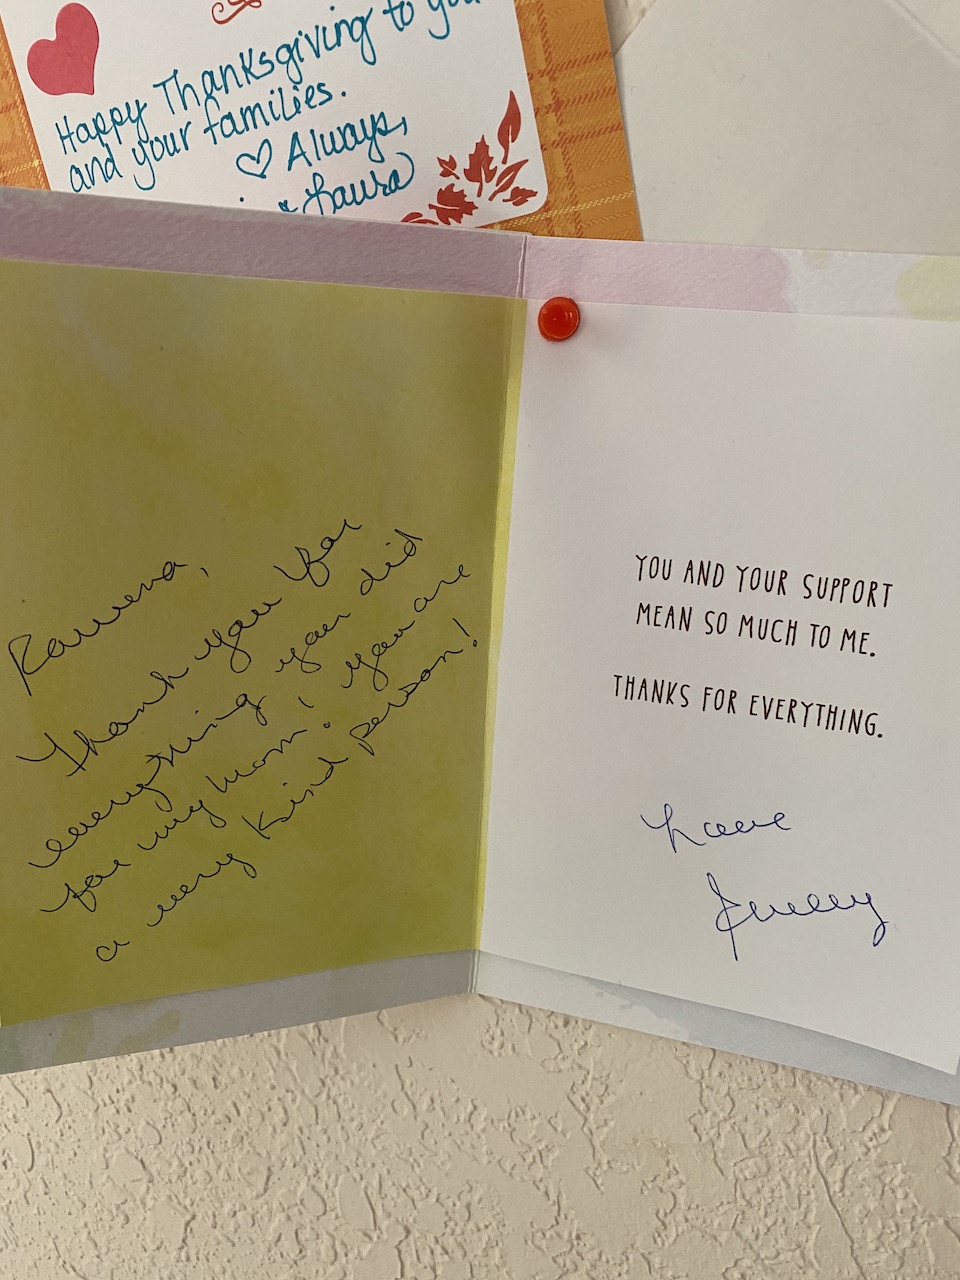 Happy Thanksgiving to you
and your families.
♡ Always,
& Laura
Thank you for
everything you did
for my mom! you are
a very kind person!
YOU AND YOUR SUPPORT
MEAN SO MUCH TO ME.
THANKS FOR EVERYTHING.
Love